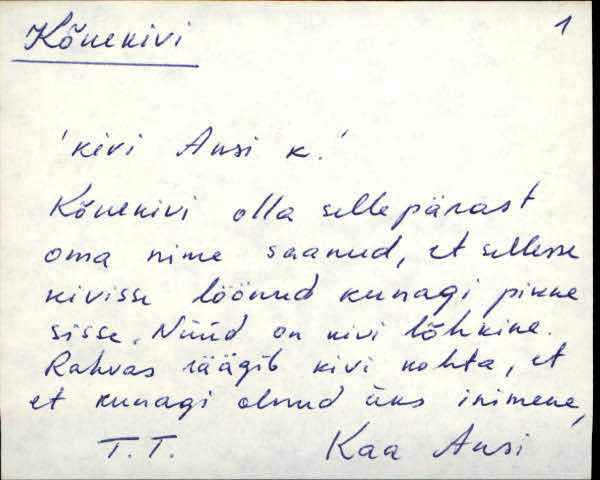 Kõnekivi
1
'kivi Ansi k.'
Kõnekivi olla sellepärast
oma nime saanud, et sellesse
kivisse löönud kunagi pikne
sisse. Nüüd on kivi lõhkine.
Rahvas räägib kivi kohta, et
et kunagi olnud üks inimene,
T.T.
Kaa Ansi